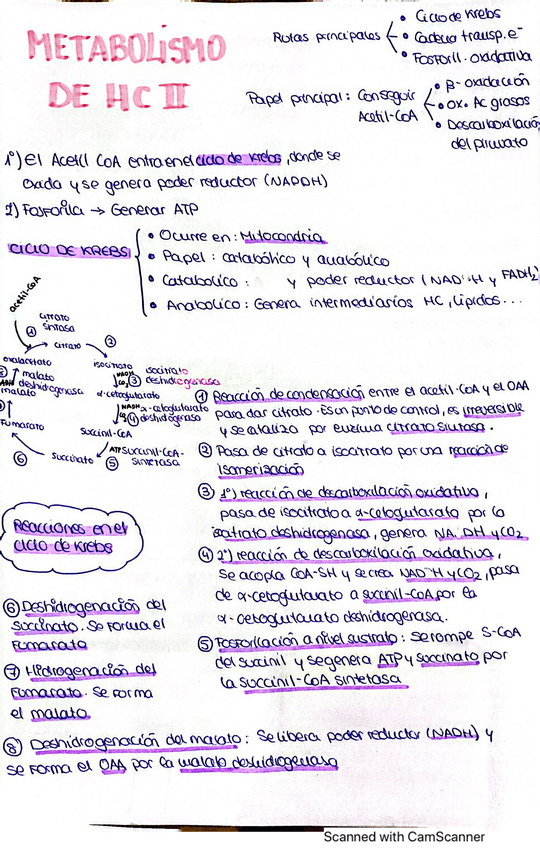 METABOLISMO
DE HC II
Rutas principales
• Ciclo de Krebs
• Cadena transp. e⁻
• Fosforil. oxidativa
Papel principal: Conseguir
Acetil-CoA
• β-oxidación
• ox. Ac grasos
• Descarboxilación
del piruvato
1º) El Acetil CoA entra en el ciclo de Krebs, donde se
oxida y se genera poder reductor (NADPH)
2) Fosforila → Generar ATP
CICLO DE KREBS
• Ocurre en: Mitocondria
• Papel: catabólico y anabólico
• Catabólico: y poder reductor (NAD H y FADH₂)
• Anabólico: Genera intermediarios HC, lípidos...
acetil-CoA
citrato
sintasa
①
citrato
②
oxalacetato
isocitrato
isocitrato
③ deshidrogenasa
NADH
CO₂
α-cetoglutarato
NADH
CO₂
α-cetoglutarato
④ deshidrogenasa
Succinil-CoA
ATP
Succinil-CoA-
sintetasa
⑤
Succinato
⑥
Fumarato
malato
malato
deshidrogenasa
① Reacción de condensación entre el acetil-CoA y el OAA
para dar citrato. Es un punto de control, es irreversible
y se cataliza por enzima citrato sintasa.
② Pasa de citrato a isocitrato por una reacción de
isomerización
③ 1º) reacción de descarboxilación oxidativa,
pasa de isocitrato a α-cetoglutarato por la
isocitrato deshidrogenasa, genera NADH y CO₂
④ 2º) reacción de descarboxilación oxidativa,
se acopla COA-SH y se crea NAD H y CO₂, pasa
de α-cetoglutarato a succinil-CoA por la
α-cetoglutarato deshidrogenasa.
⑤ Fosforilación a nivel sustrato: se rompe S-CoA
del succinil y se genera ATP y succinato por
la succinil-CoA sintetasa
Reacciones en el
ciclo de Krebs
⑥ Deshidrogenación del
succinato. Se forma el
fumarato
⑦ Hidrogenación del
fumarato. Se forma
el malato
⑧ Deshidrogenación del malato: Se libera poder reductor (NADH) y
se forma el OAA por la malato deshidrogenasa
Scanned with CamScanner